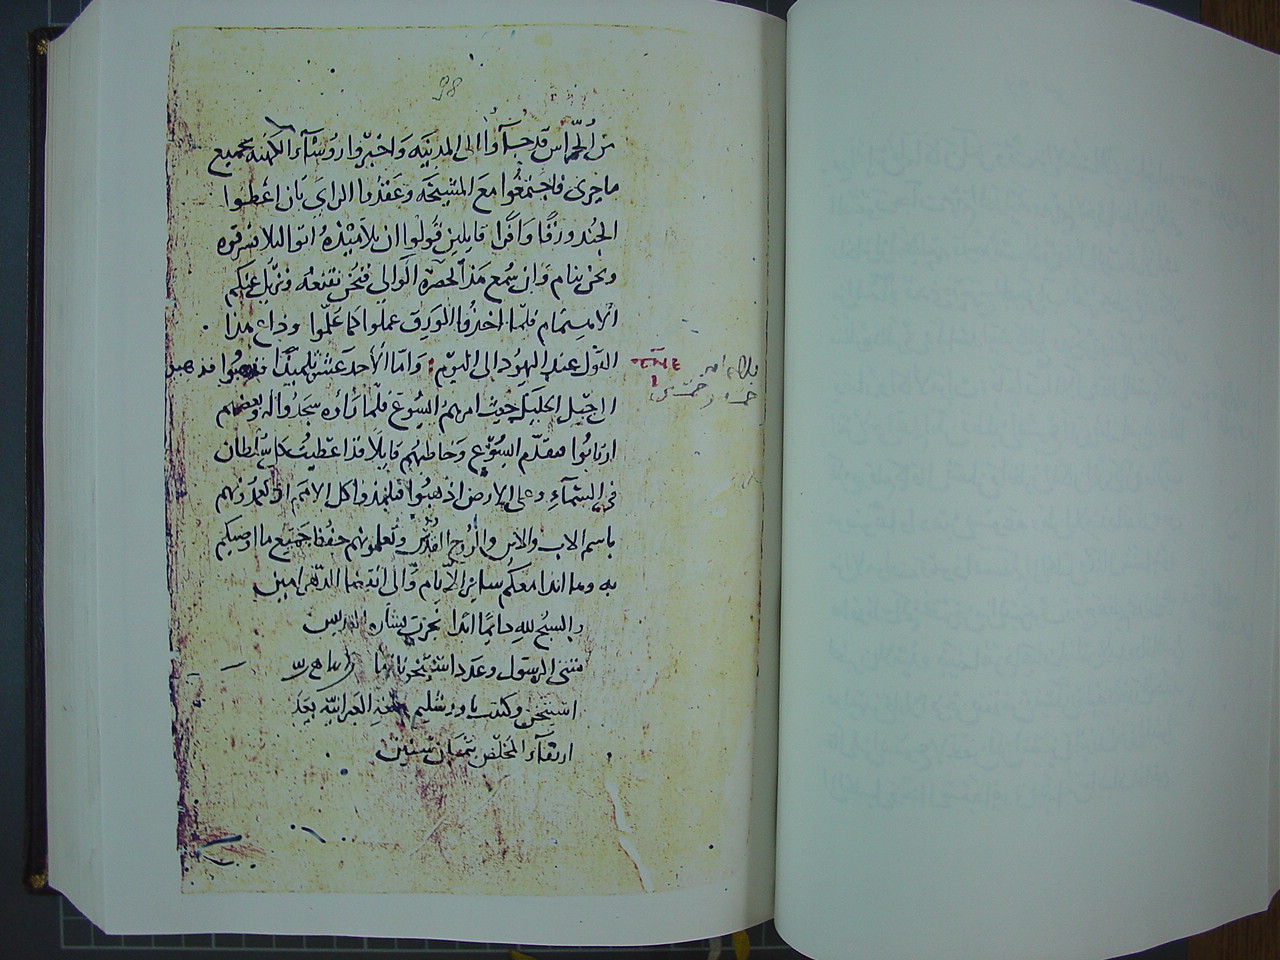 98
من الحراس قد جآوا الى المدينه واخبروا روسآء الكهنه بجميع
ما جرى فاجتمعوا مع المشيخه وعقدوا الراي بان اعطوا
الجند ورقا وافرا قايلين قولوا ان تلاميذه اتوا ليلا فسرقوه
ونحن نيام وان سمع هذا الوالي فنحن نقنعه ونزيل عنكم
الاهتمام فلما اخذوا الورق عملوا كما علموا وذاع هذا
القول عند اليهود الى اليوم واما الاحد عشر تلميذا فذهبوا
الى جبل الجليل حيث امرهم اليسوع فلما راوه سجدوا له وبعضهم
ارتابوا فتقدم اليسوع وخاطبهم قايلا قد اعطيت كل سلطان
في السمآء وعلى الارض اذهبوا فتلمذوا كل الامم
باسم الاب والابن والروح القدس وتعلمونهم حفظ جميع ما اوصيتكم
به وها انذا معكم ساير الايام والى انتها الدهر امين
والسبح لله دايما ابدا نجزت بشاره القديس
متى الرسول وعدد
وكتب باورشليم العبرانيه بعد
ارتقآء المخلص بثمان سنين